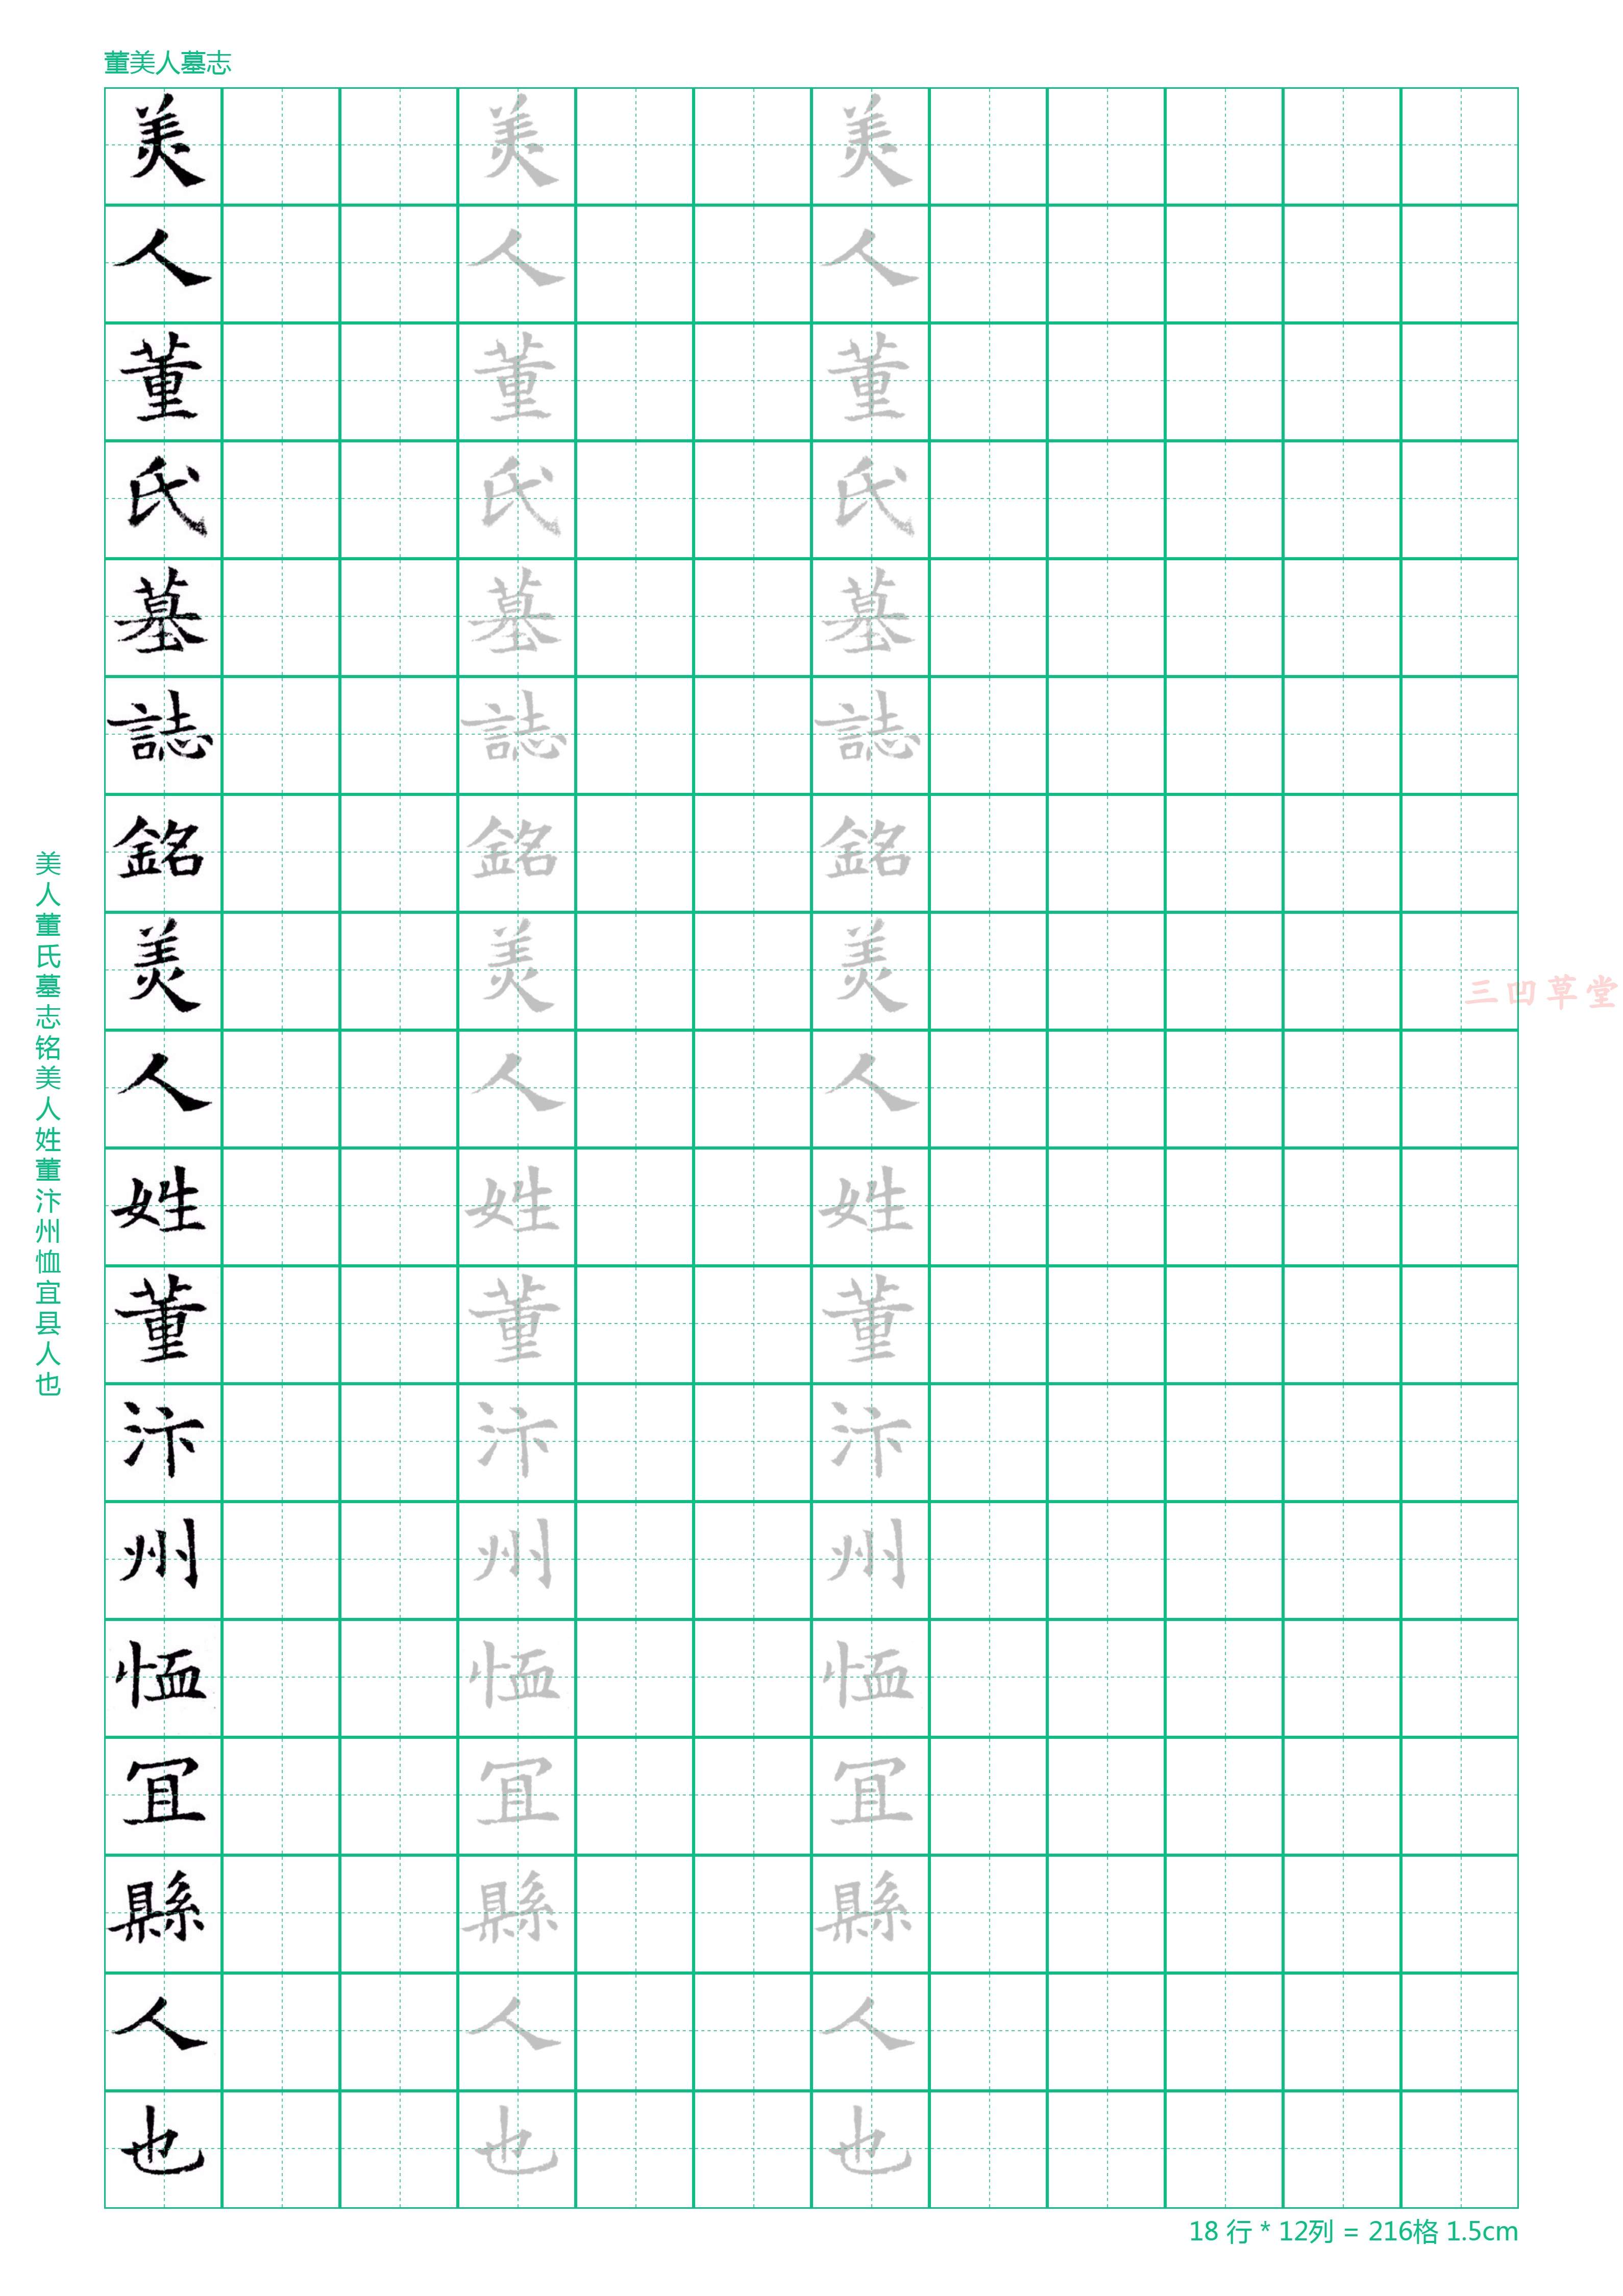 董美人墓志
美人董氏墓志铭美人姓董汴州恤宜县人也
美 美 美
人 人 人
董 董 董
氏 氏 氏
墓 墓 墓
誌 誌 誌
銘 銘 銘
美 美 美
人 人 人
姓 姓 姓
董 董 董
汴 汴 汴
州 州 州
恤 恤 恤
冝 冝 冝
縣 縣 縣
人 人 人
也 也 也
三凹草堂
18 行 * 12列 = 216格 1.5cm